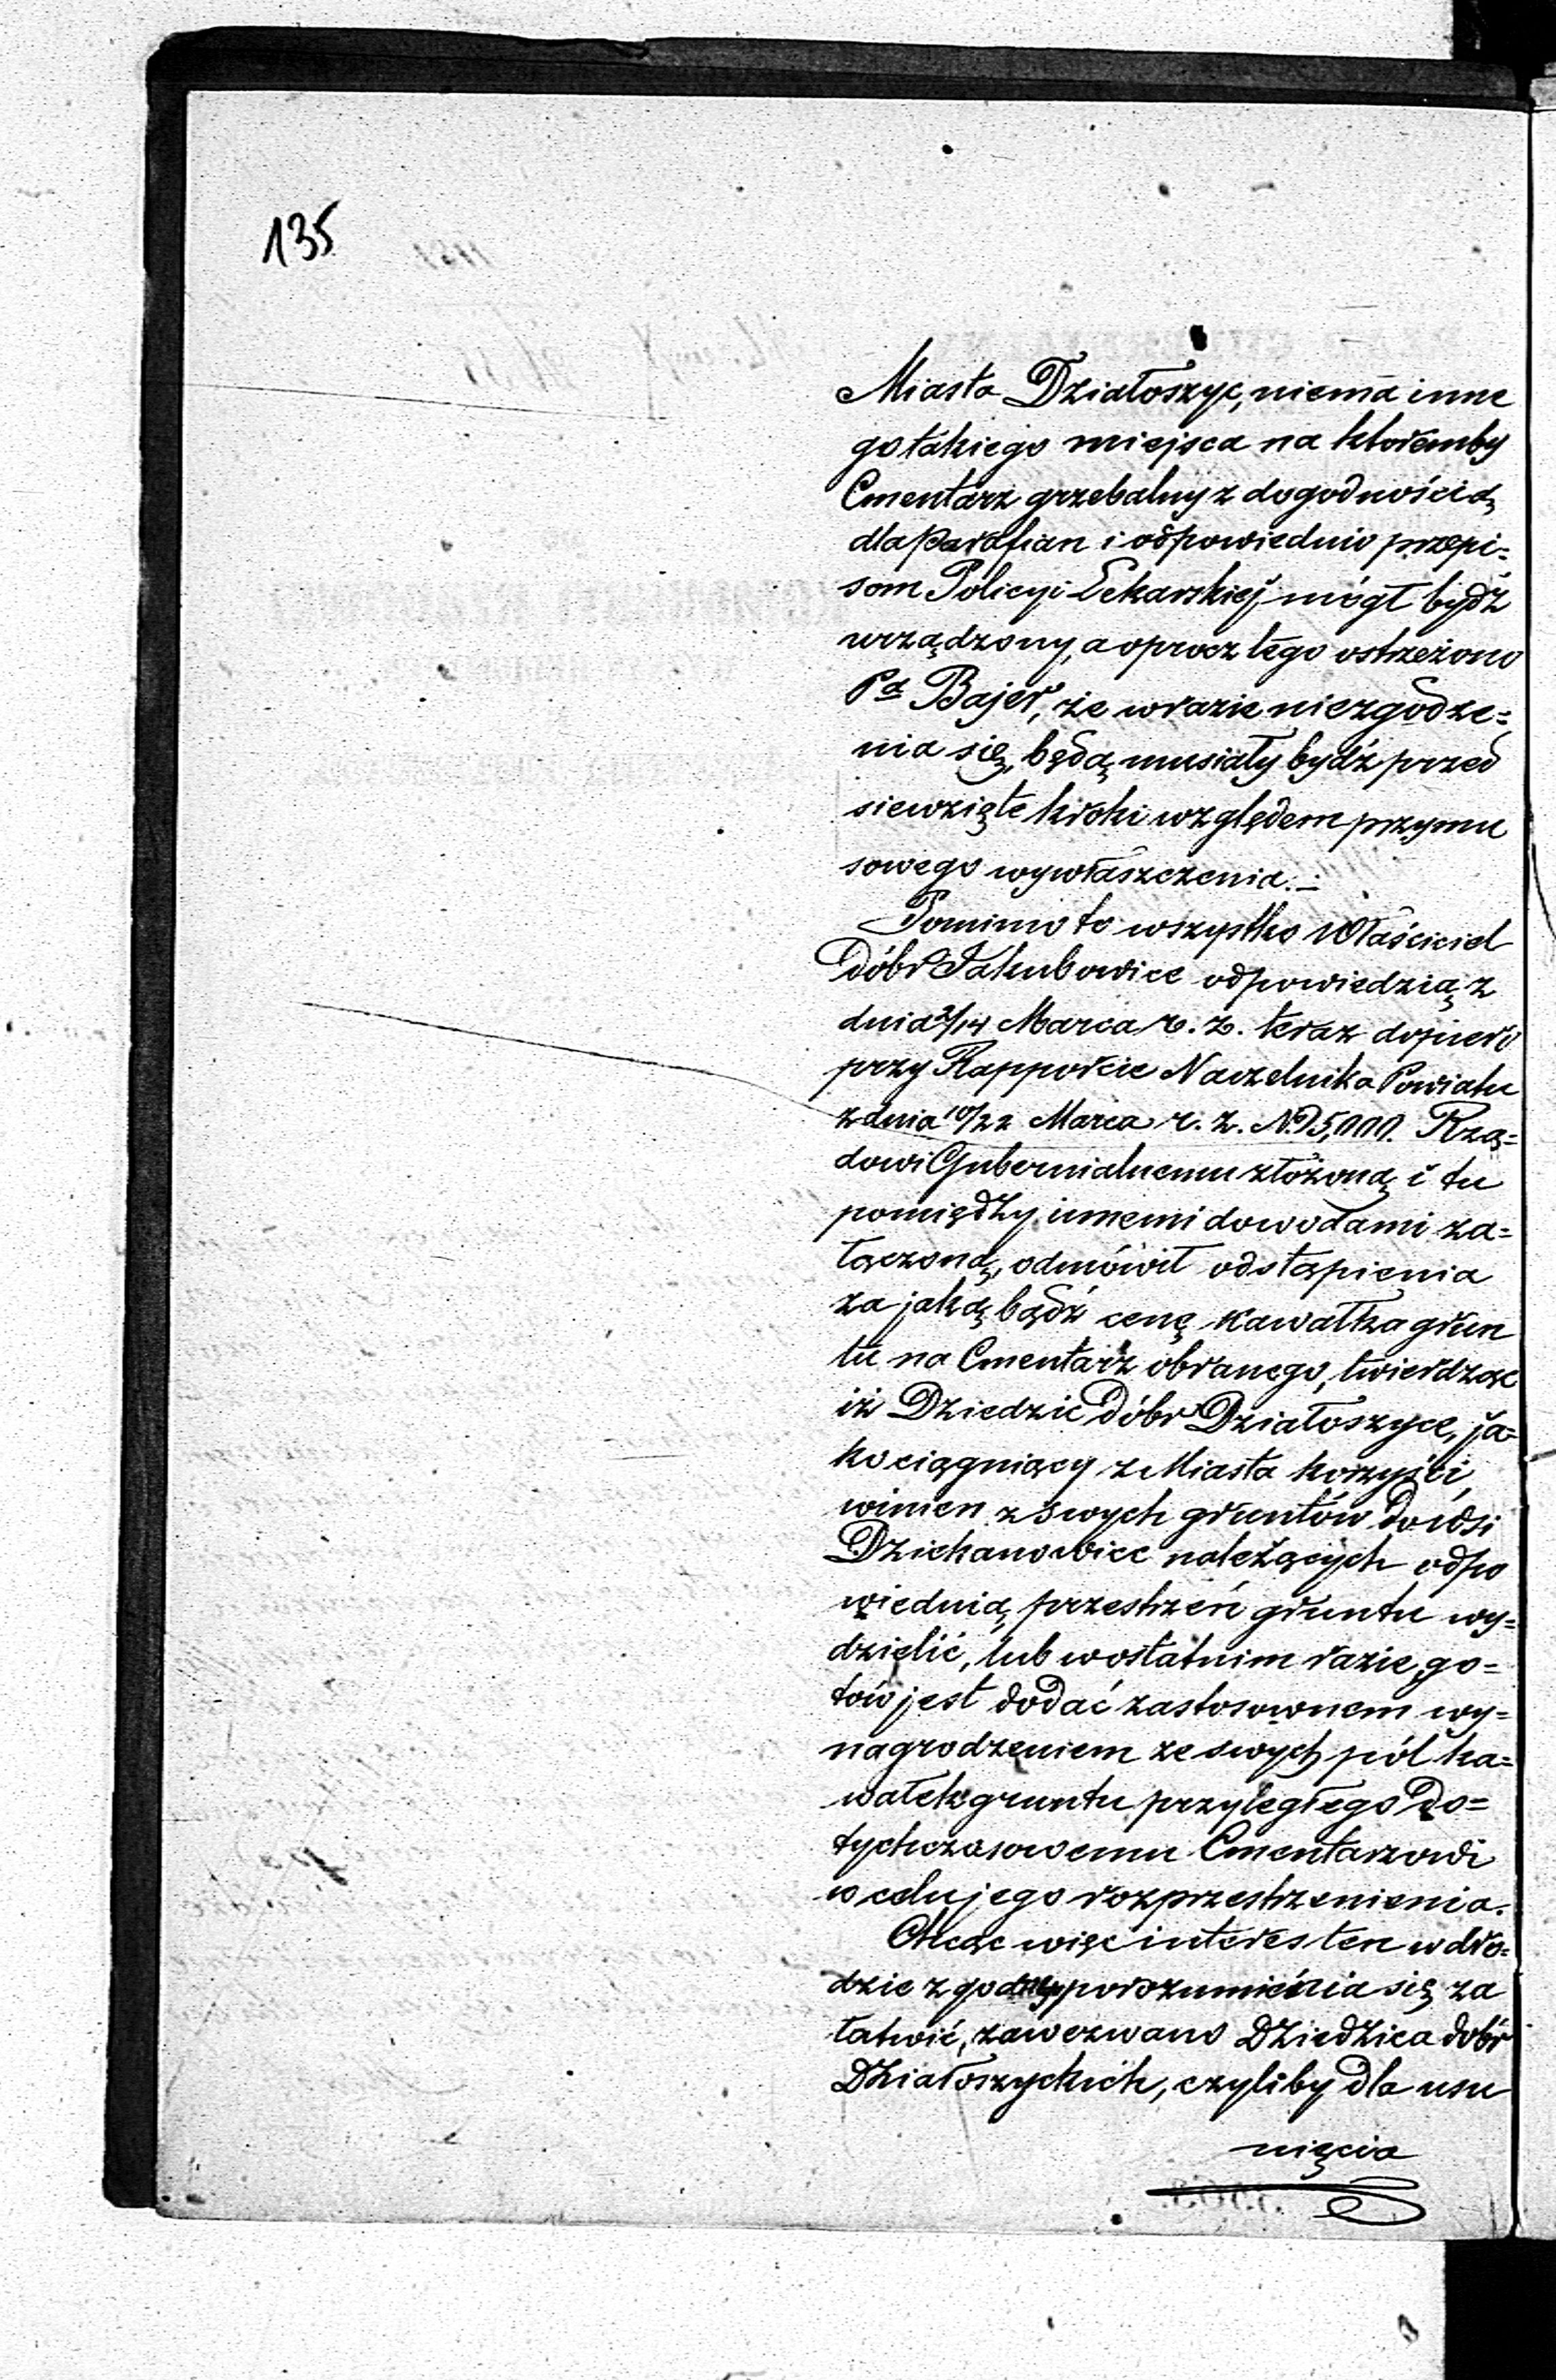 135
Miasta Działoszyc, niema inne
go takiego miejsca na któremby
Cmentarz grzebalny z dogodnością
dla Parafian i odpowiednio przepi=
som Policyi Lekarskiej mógł bydź
urządzony, a oprocz tego ostrzeżono
Pa Bajer, że wrazie niezgodze=
nia się, będą musiały bydź przed
siewzięte kroki względem przymu
sowego wywłaszczenia.-
Pomimo to wszystko Właściciel
Dóbr Jakubowice odpowiedzią z
dnia 2/14 Marca r. z. teraz dopiero
przy Rapporcie Naczelnika Powiatu
z dnia 10/22 Marca r. z. No 5,000. Rzą=
dowi Gubernialnemu złożoną i tu
pomiędzy innemi dowodami za=
łączoną, odmówił odstąpienia
za jaką bądź cenę kawałka grun
tu na Cmentarz obranego, twierdząc
iż Dziedzic Dóbr Działoszyce, ja=
ko ciągniący z Miasta korzyści,
winien z swych gruntów do wsi
Dziekanowice należących odpo
wiednią przestrzeń gruntu wy=
dzielić, lub w ostatnim razie, go=
tów jest dodać za stosownem wy=
nagrodzeniem ze swych pól ka=
wałek gruntu przyległego do=
tychczasowemu Cmentarzowi
w celu jego rozprzestrzenienia.
Chcąc więc interes ten w dro=
dzie zgodnego porozumienia się za
łatwić, zawezwano Dziedzica dóbr
Działoszyckich, czyliby dla usu
nięcia